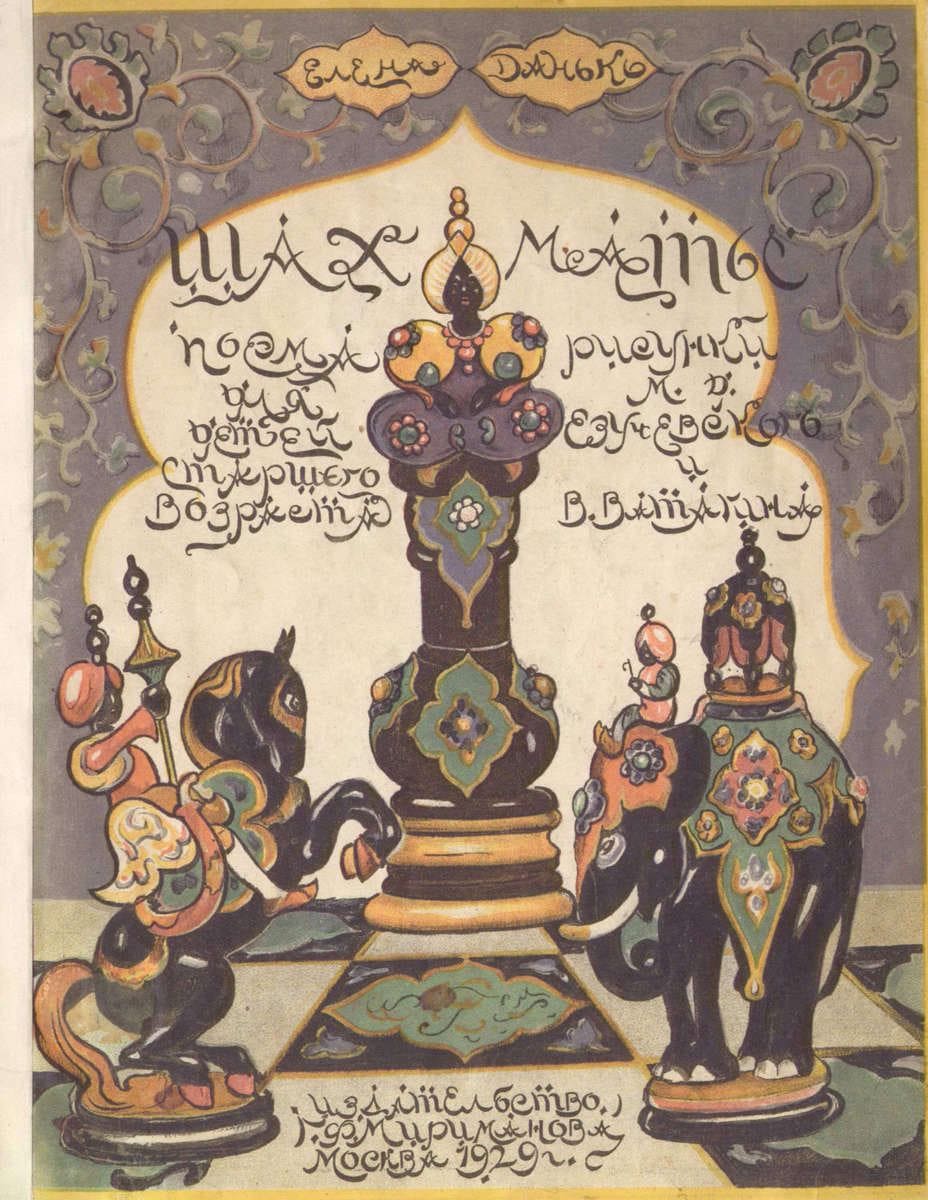 ЕЛЕНА ДАНЬКО
ШАХ МАТЫ
ПОЭМА
ДЛЯ
ДЕТЕЙ
СТАРШЕГО
ВОЗРАСТА
РИСУНКИ
М. Д.
ЕЗУЧЕВСКОГО
И
В. ВАТАГИНА
ИЗДАТЕЛЬСТВО
Г. Ф. МИРИМАНОВА
МОСКВА 1929 г.